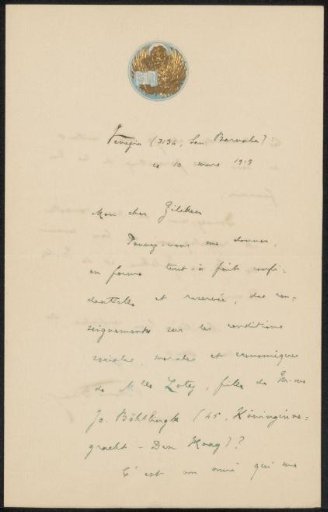 Venezia (3134, San Barnaba)
le 10 mars 1913
Mon cher Zilcken
Pouvez-vous me donner,
en forme tout-à-fait confi-
dentielle et reservée, des ren-
seignements sur les conditions
sociales, morales et economiques
de M lles Loty, filles de
Jo. Böhtlingk (45, Koninginne-
gracht - Den Haag)?
C'est un ami qui me